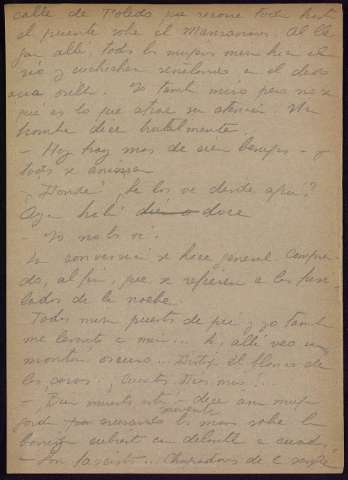 calle de Toledo que recorre toda hasta
el puente sobre el Manzanares. Al lle
gar allí, todas las mujeres miran hacia el
río y cuchichean señalando, en el dedo
una orilla. Yo también miro pero no sé
qué es lo que atrae su atención. Un
hombre dice brutalmente.
- Hoy hay más de cien besugos - y
todos se animan
- ¿Donde? ¿Se los ve desde aquí?
Ayer había diez o doce
- Yo no los vi.
La conversación se hace general. Compren
do, al fin, que se refieren a los fusi
lados de la noche.
Todos miran puestos de pie, yo también
me levanto a mirar... Sí, allí veo un
montón oscuro... Distingo el blanco de
las caras. ¡Cuántos Dios mío!...
- Bien muertos están - dice una mujer
gorda cruzando las manos sobre la
barriga cubierta con delantal a cuadros
- Son fascistas... Chupadores de la sangre